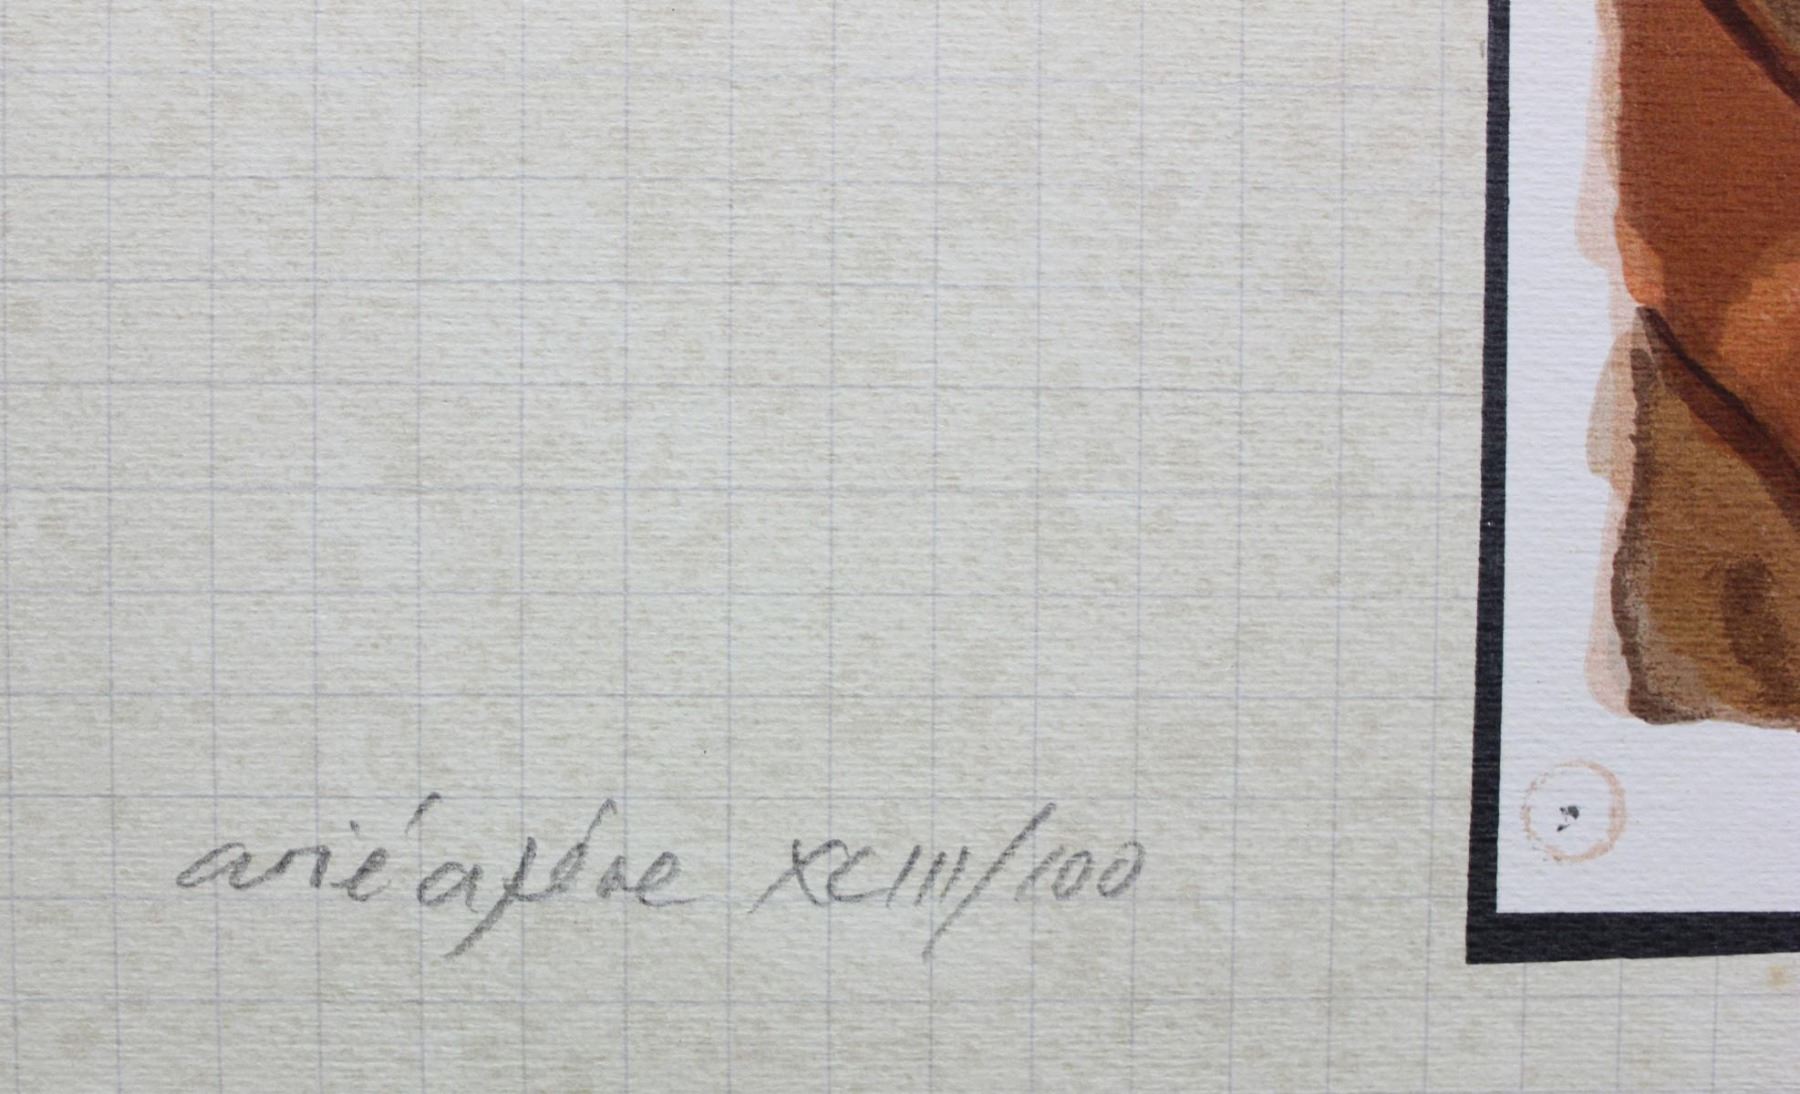 arié azène XCIII/100